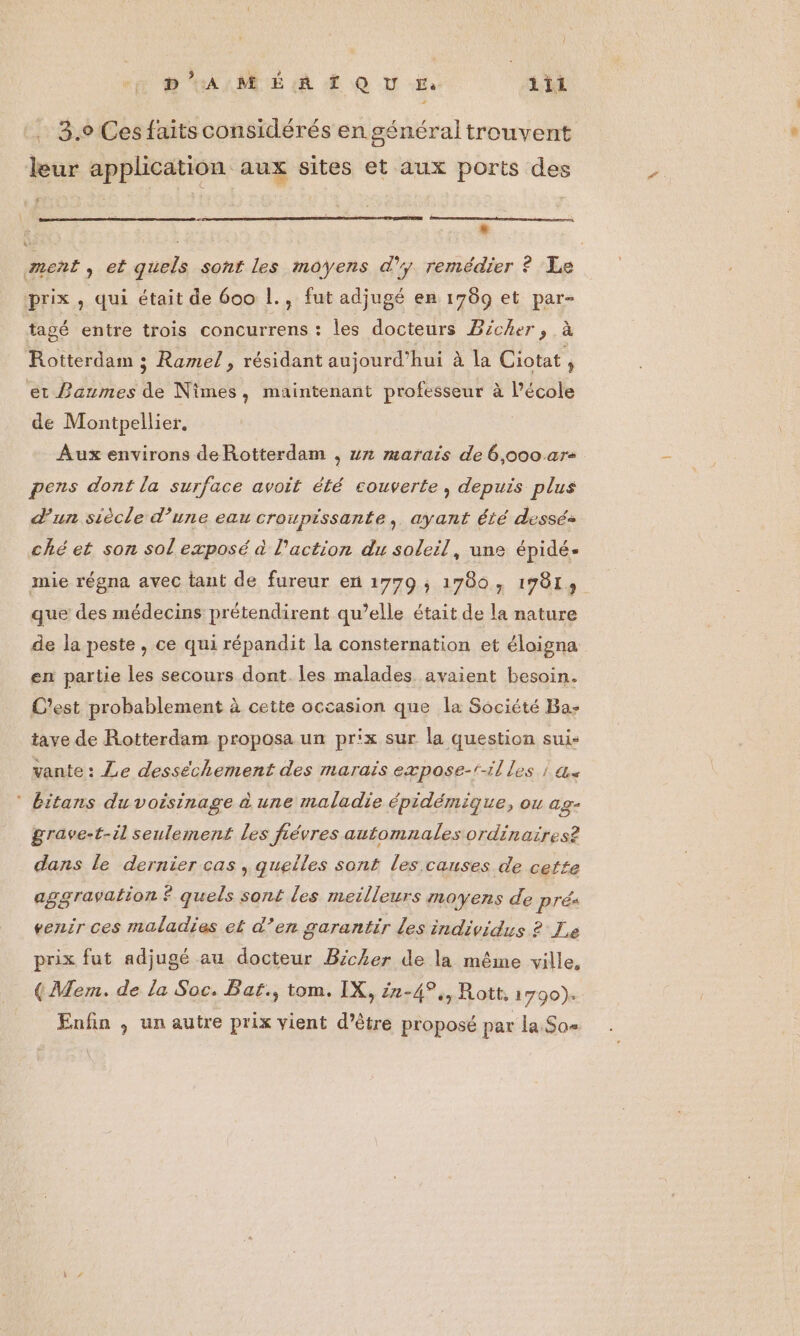 D'AMÉRIQUE. 111
3.º Ces faits considérés en général trouvent
leur application aux sites et aux ports des
ment, et quels sont les moyens d'y remédier ? Le
prix, qui était de 600 l., fut adjugé en 1789 et par-
tagé entre trois concurrens : les docteurs Bicher, à
Rotterdam ; Ramel, résidant aujourd'hui à la Ciotat,
et Baumes de Nîmes, maintenant professeur à l'école
de Montpellier.
Aux environs de Rotterdam, un marais de 6,000 ar-
pens dont la surface avoit été couverte, depuis plus
d'un siècle d'une eau croupissante, ayant été dessé-
ché et son sol exposé à l'action du soleil, une épidé-
mie régna avec tant de fureur en 1779, 1780, 1781,
que des médecins prétendirent qu'elle était de la nature
de la peste, ce qui répandit la consternation et éloigna
en partie les secours dont les malades avaient besoin.
C'est probablement à cette occasion que la Société Ba-
tave de Rotterdam proposa un prix sur la question sui-
vante : Le desséchement des marais expose-t-il les ha-
bitans du voisinage à une maladie épidémique, ou ag-
grave-t-il seulement les fiévres automnales ordinaires?
dans le dernier cas, quelles sont les causes de cette
aggravation ? quels sont les meilleurs moyens de pré-
venir ces maladies et d'en garantir les individus ? Le
prix fut adjugé au docteur Bicher de la même ville.
(Mem. de la Soc. Bat., tom. IX, in-4°., Rott. 1790).
Enfin, un autre prix vient d'être proposé par la So-